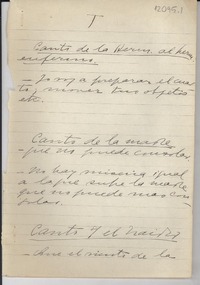 I
12045.1
Canto de la Herm. al her.
enfermo.
— Yo voy a preparar el cuar
to, mover tus objetos
etc.
Canto de la madre
que no puede consolar.
— No hay miseria igual
a la que sufre la madre
que no puede mas con-
solar.
Canto y el
— Ave el viento de la